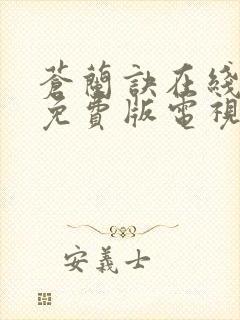 蒼蘭訣在綫
免費版電視
安義士